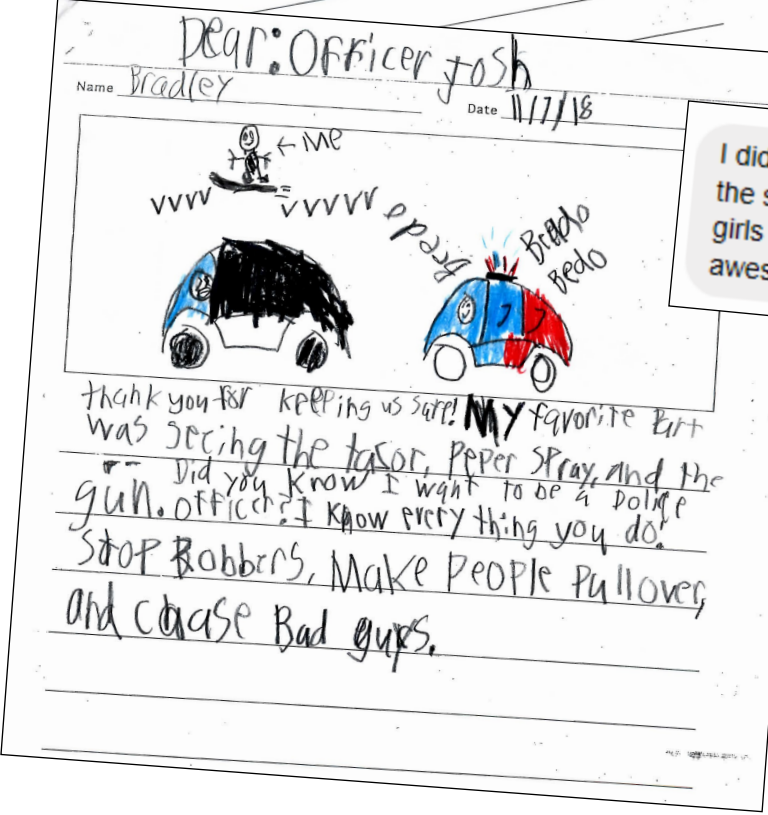 Dear: Officer Josh
Name Bradley
Date 11/7/18
← Me
VVVV VVVVV
Bredo
Brado
Bedo
thank you for keeping us safe! My favorite Part
was seeing the tasor, Peper Spray, and the
gun. Did you Know I want to be a Police
officer? I Know every thing you do!
Stop Robbers, Make People Pullover,
and chase Bad guys.
I did
the s
girls
awes